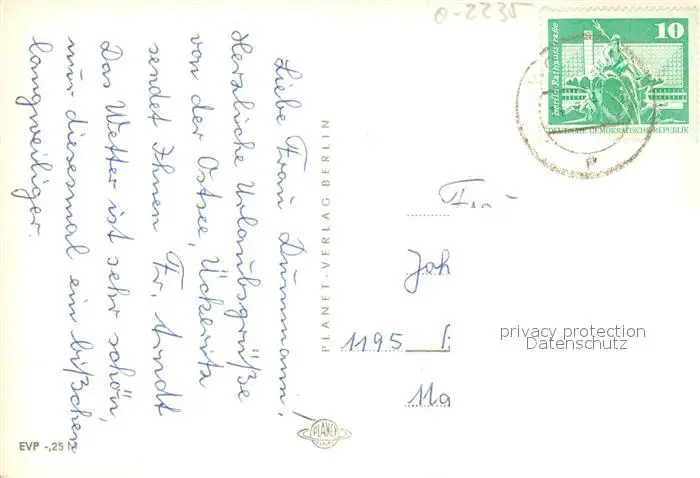 0-2235
10
berlin, Rathausstraße
DEUTSCHE DEMOKRATISCHE REPUBLIK
Liebe Frau Dummann!
Herzliche Urlaubsgrüße
von der Ostsee, Ückeritz
sendet Ihnen Fr. Arndt
Das Wetter ist sehr schön,
nur diesesmal ein bißchen
langweiliger.
PLANET-VERLAG BERLIN
Frau
Joh
1195
PLANET
EVP -,25 M
privacy protection
Datenschutz